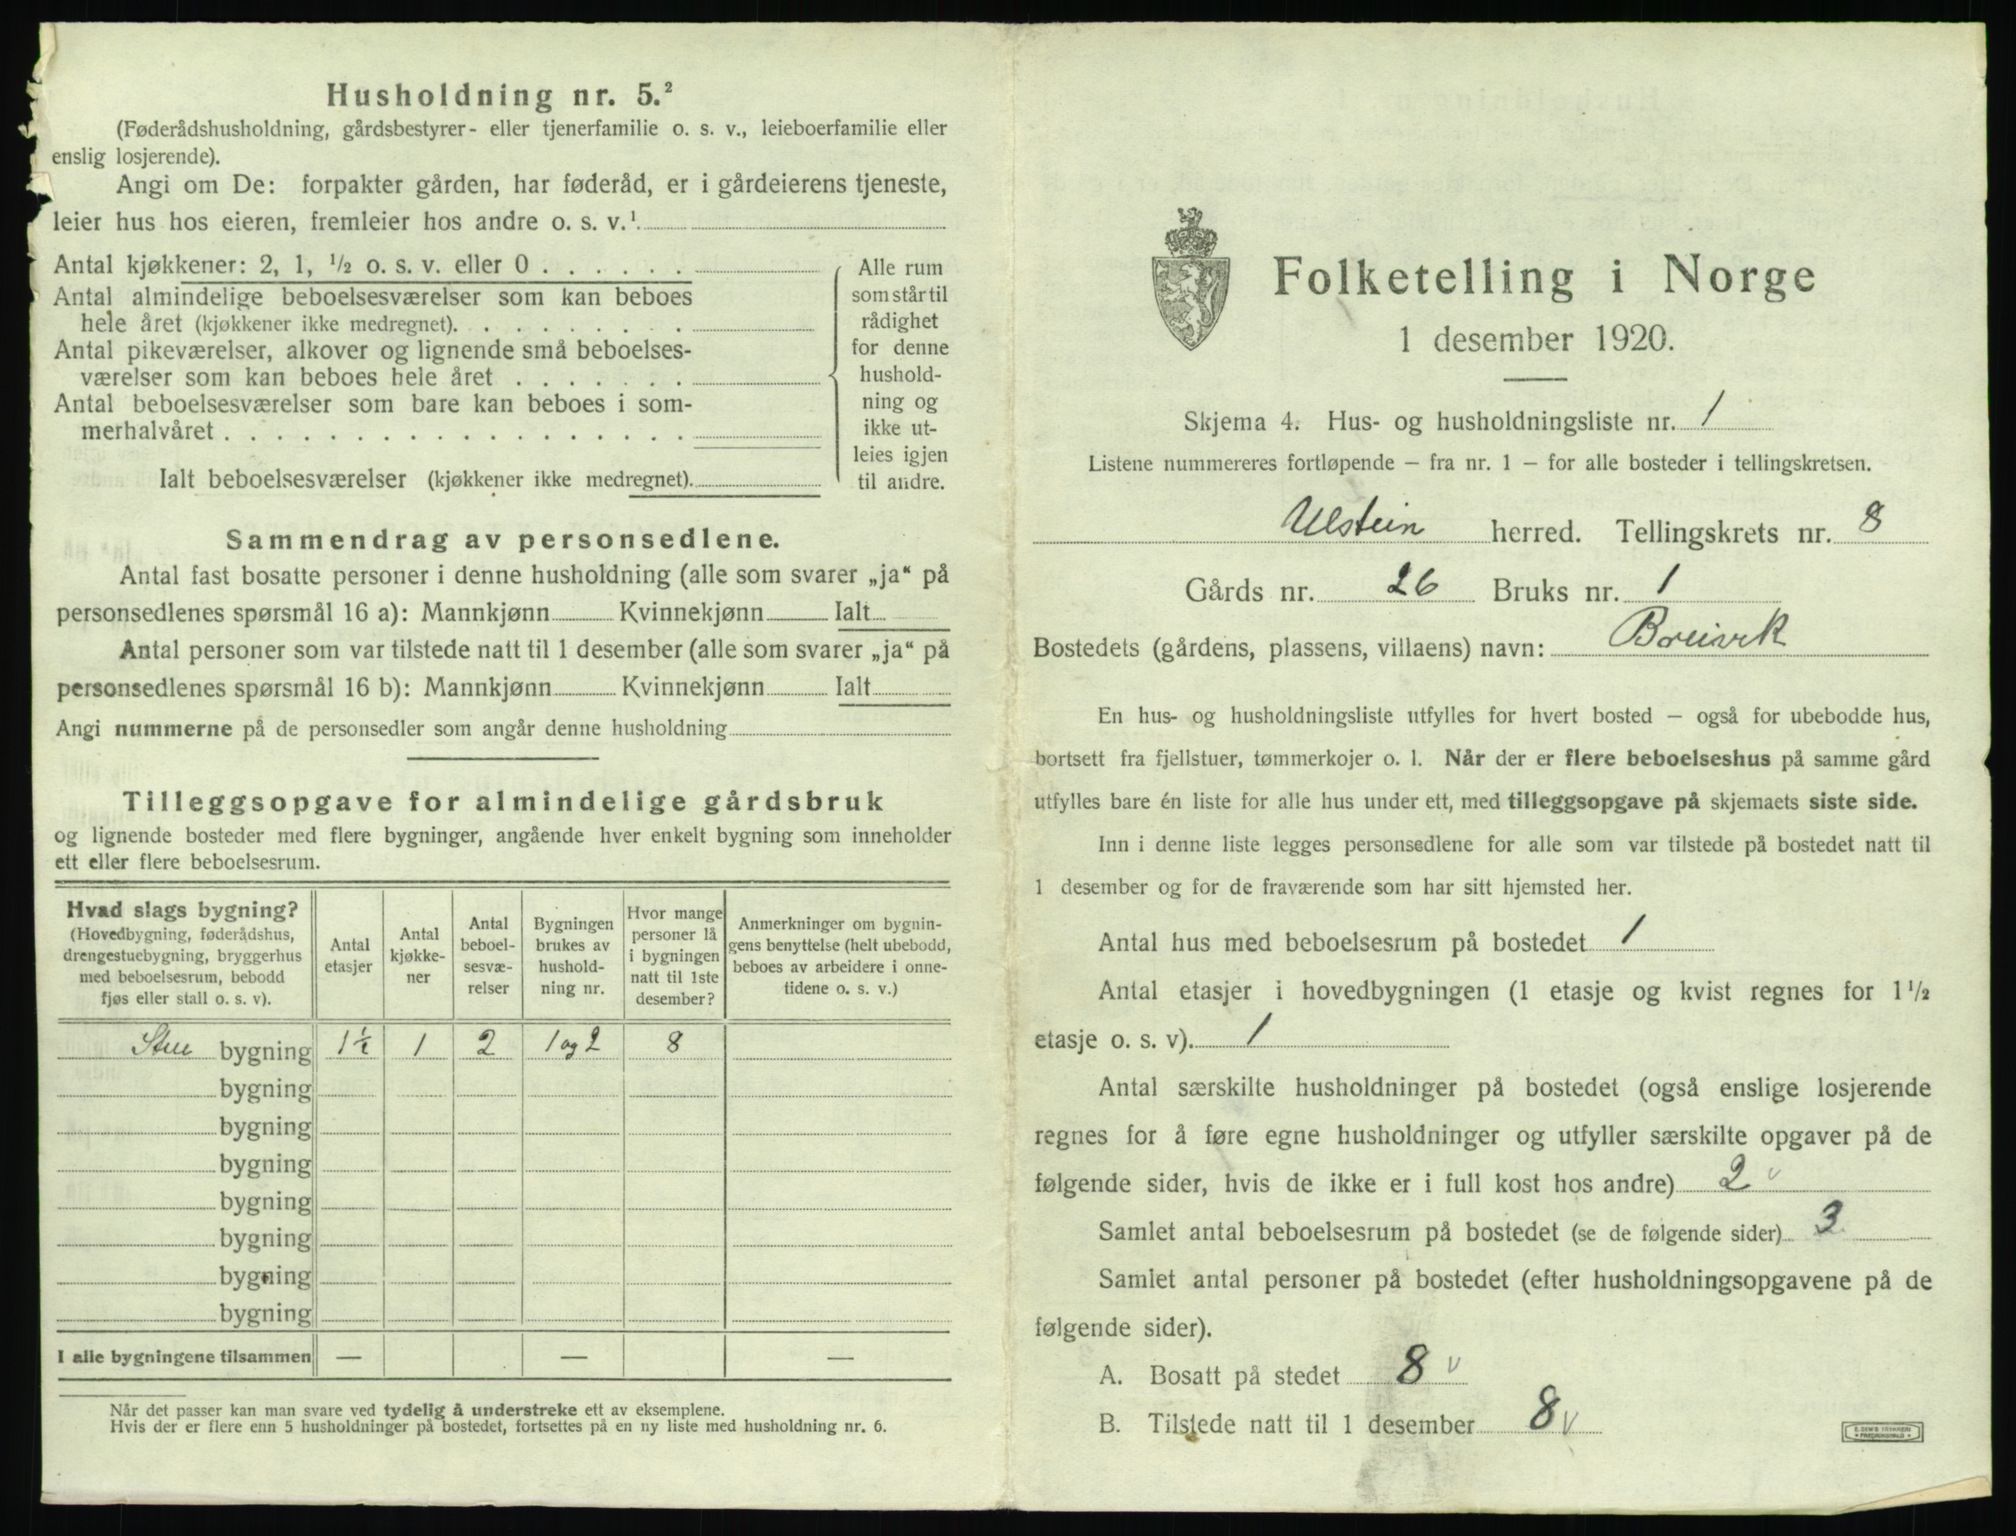 Husholdning nr. 5.²
(Føderådshusholdning, gårdsbestyrer- eller tjenerfamilie o. s. v., leieboerfamilie eller
enslig losjerende).
Angi om De: forpakter gården, har føderåd, er i gårdeierens tjeneste,
leier hus hos eieren, fremleier hos andre o. s. v.¹
Antal kjøkkener: 2, 1, ½ o. s. v. eller 0 . . . . . .
Antal almindelige beboelsesværelser som kan beboes
hele året (kjøkkener ikke medregnet). . . . . . . . .
Antal pikeværelser, alkover og lignende små beboelses-
værelser som kan beboes hele året . . . . . . .
Antal beboelsesværelser som bare kan beboes i som-
merhalvåret . . . . . . . . . . . . . . . . . .
Ialt beboelsesværelser (kjøkkener ikke medregnet).
Alle rum
som står til
rådighet
for denne
hushold-
ning og
ikke ut-
leies igjen
til andre.
Sammendrag av personsedlene.
Antal fast bosatte personer i denne husholdning (alle som svarer „ja“ på
personsedlenes spørsmål 16 a): Mannkjønn Kvinnekjønn Ialt
Antal personer som var tilstede natt til 1 desember (alle som svarer „ja“ på
personsedlenes spørsmål 16 b): Mannkjønn Kvinnekjønn Ialt
Angi nummerne på de personsedler som angår denne husholdning
Tilleggsopgave for almindelige gårdsbruk
og lignende bosteder med flere bygninger, angående hver enkelt bygning som inneholder
ett eller flere beboelsesrum.
Hvad slags bygning?
(Hovedbygning, føderådshus,
drengestuebygning, bryggerhus
med beboelsesrum, bebodd
fjøs eller stall o. s. v).
Antal
etasjer
Antal
kjøkke-
ner
Antal
beboel-
sesvæ-
relser
Bygningen
brukes av
hushold-
ning nr.
Hvor mange
personer lå
i bygningen
natt til 1ste
desember?
Anmerkninger om bygnin-
gens benyttelse (helt ubebodd,
beboes av arbeidere i onne-
tidene o. s. v.)
Stue bygning 1½ 1 2 1 og 2 8
bygning
bygning
bygning
bygning
bygning
bygning
bygning
I alle bygningene tilsammen — — —
Når det passer kan man svare ved tydelig å understreke ett av eksemplene.
Hvis der er flere enn 5 husholdninger på bostedet, fortsettes på en ny liste med husholdning nr. 6.
Folketelling i Norge
1 desember 1920.
Skjema 4. Hus- og husholdningsliste nr. 1
Listene nummereres fortløpende – fra nr. 1 – for alle bosteder i tellingskretsen.
Ulstein herred. Tellingskrets nr. 8
Gårds nr. 26 Bruks nr. 1
Bostedets (gårdens, plassens, villaens) navn: Breivik
En hus- og husholdningsliste utfylles for hvert bosted – også for ubebodde hus,
bortsett fra fjellstuer, tømmerkojer o. l. Når der er flere beboelseshus på samme gård
utfylles bare én liste for alle hus under ett, med tilleggsopgave på skjemaets siste side.
Inn i denne liste legges personsedlene for alle som var tilstede på bostedet natt til
1 desember og for de fraværende som har sitt hjemsted her.
Antal hus med beboelsesrum på bostedet 1
Antal etasjer i hovedbygningen (1 etasje og kvist regnes for 1½
etasje o. s. v). 1
Antal særskilte husholdninger på bostedet (også enslige losjerende
regnes for å føre egne husholdninger og utfyller særskilte opgaver på de
følgende sider, hvis de ikke er i full kost hos andre) 2 v
Samlet antal beboelsesrum på bostedet (se de følgende sider) 3
Samlet antal personer på bostedet (efter husholdningsopgavene på de
følgende sider).
A. Bosatt på stedet 8 v
B. Tilstede natt til 1 desember 8 v